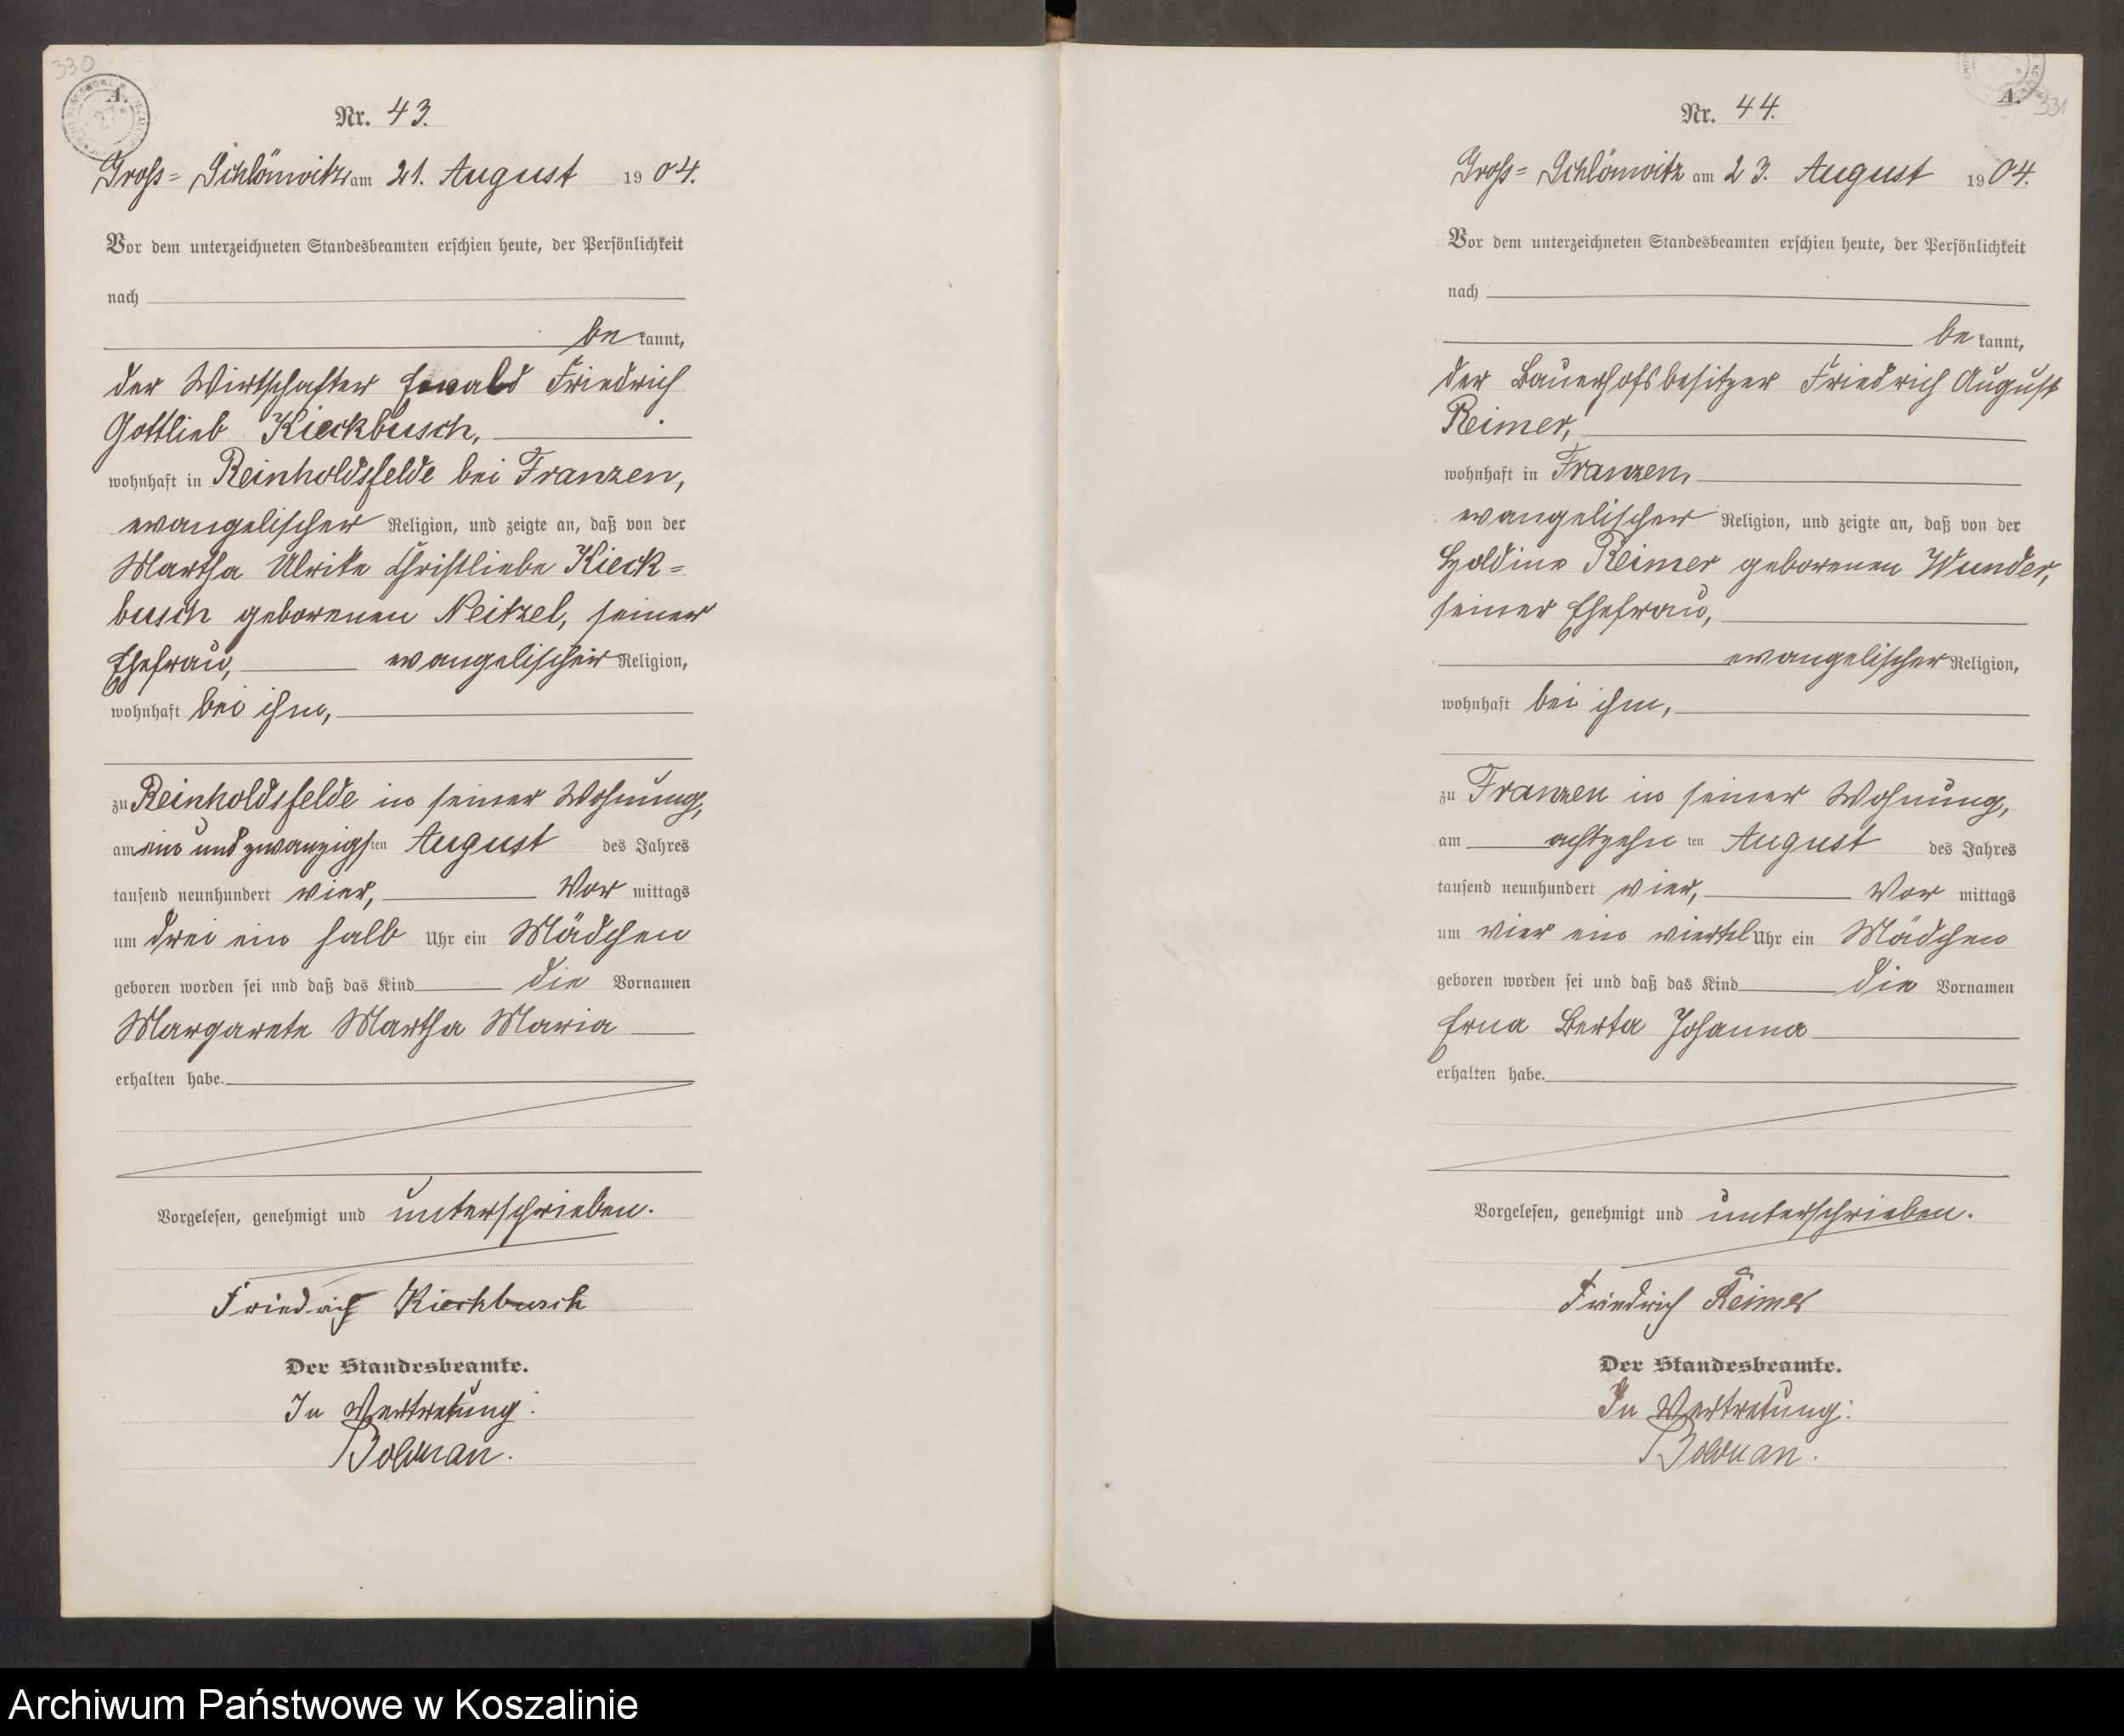 330
A.
Nr. 43.
Gross= Schlönwitz am 21. August 1904.
Vor dem unterzeichneten Standesbeamten erschien heute, der Persönlichkeit
nach
be kannt,
der Wirtschafter Ewald Friedrich
Gottlieb Kieckbusch,
wohnhaft in Reinholdsfelde bei Franzen,
evangelischer Religion, und zeigte an, daß von der
Martha Ulrike Christliebe Kieck=
busch geborenen Neitzel, seiner
Ehefrau, evangelischer Religion,
wohnhaft bei ihm,
zu Reinholdsfelde in seiner Wohnung,
am ein und zwanzigsten August des Jahres
tausend neunhundert vier, Vor mittags
um drei ein halb Uhr ein Mädchen
geboren worden sei und daß das Kind die Vornamen
Margarete Martha Maria
erhalten habe.
Vorgelesen, genehmigt und unterschrieben.
Friedrich Kieckbusch
Der Standesbeamte.
In Vertretung:
331
A.
Nr. 44.
Gross= Schlönwitz am 23. August 1904.
Vor dem unterzeichneten Standesbeamten erschien heute, der Persönlichkeit
nach
be kannt,
der Bauerhofsbesitzer Friedrich August
Reimer,
wohnhaft in Franzen,
evangelischer Religion, und zeigte an, daß von der
Goldine Reimer geborenen Wunder,
seiner Ehefrau,
evangelischer Religion,
wohnhaft bei ihm,
zu Franzen in seiner Wohnung,
am achtzehn ten August des Jahres
tausend neunhundert vier, Vor mittags
um vier ein viertel Uhr ein Mädchen
geboren worden sei und daß das Kind die Vornamen
Erna Berta Johanna
erhalten habe.
Vorgelesen, genehmigt und unterschrieben.
Friedrich Reimer
Der Standesbeamte.
In Vertretung:
Archiwum Państwowe w Koszalinie